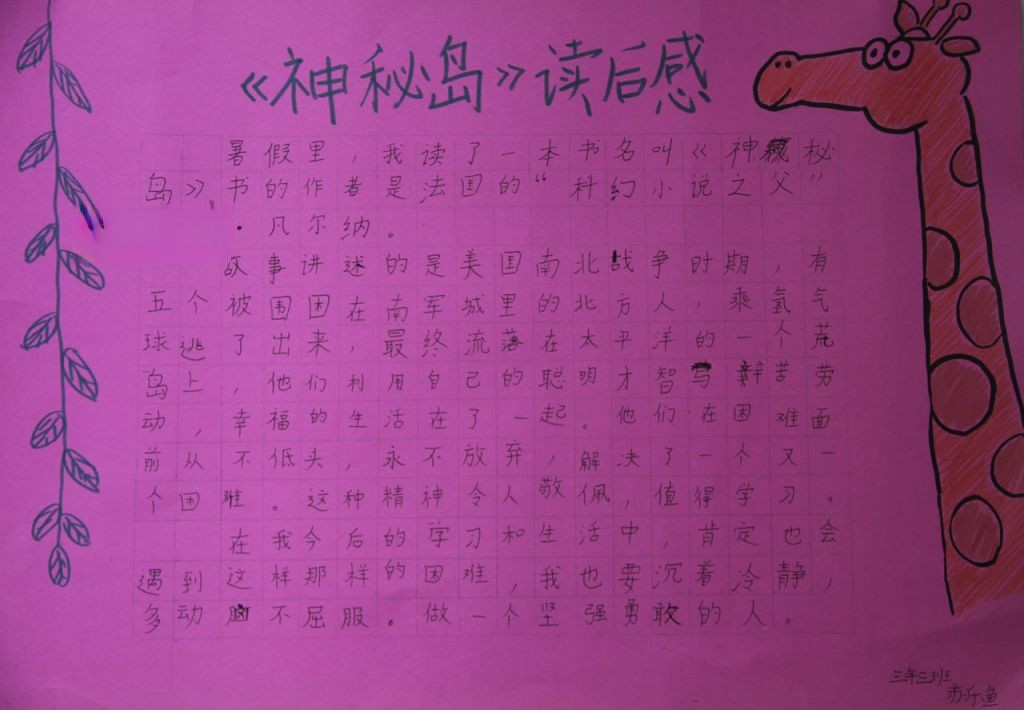 《神秘岛》读后感
暑假里，我读了一本书名叫《神秘
岛》。书的作者是法国的“科幻小说之父”
·凡尔纳。
故事讲述的是美国南北战争时期，有
五个被围困在南军城里的北方人，乘氢气
球逃了出来，最终流落在太平洋的一个荒
岛上，他们利用自己的聪明才智与辛苦劳
动，幸福的生活在了一起。他们在困难面
前从不低头，永不放弃，解决了一个又一
个困难。这种精神令人敬佩，值得学习。
在我今后的学习和生活中，肯定也会
遇到这样那样的困难，我也要沉着冷静，
多动脑不屈服。做一个坚强勇敢的人。
三年三班